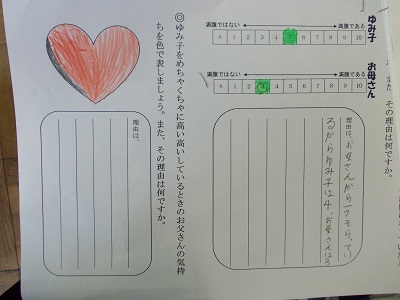 また、その理由は何ですか。
ゆみ子
満腹ではない 満腹である
0 1 2 3 4 5 6 7 8 9 10
お母さん
満腹ではない 満腹である
0 1 2 3 4 5 6 7 8 9 10
理由は、お母さんから一つもらってい
るからゆみ子は4、お母さんは3
◎ゆみ子をめちゃくちゃに高い高いしているときのお父さんの気持
ちを色で表しましょう。また、その理由は何ですか。
理由は、